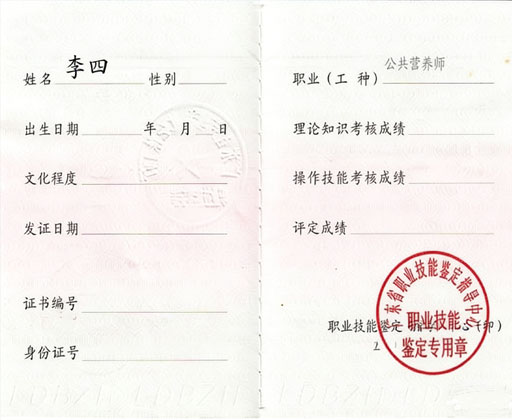 姓名 李四 性别
出生日期 年 月 日
文化程度
发证日期
证书编号
身份证号
公共营养师
职业（工 种）
理论知识考核成绩
操作技能考核成绩
评定成绩
职业技能鉴定 心（印）
东省职业技能鉴定指导中心
职业技能
鉴定专用章